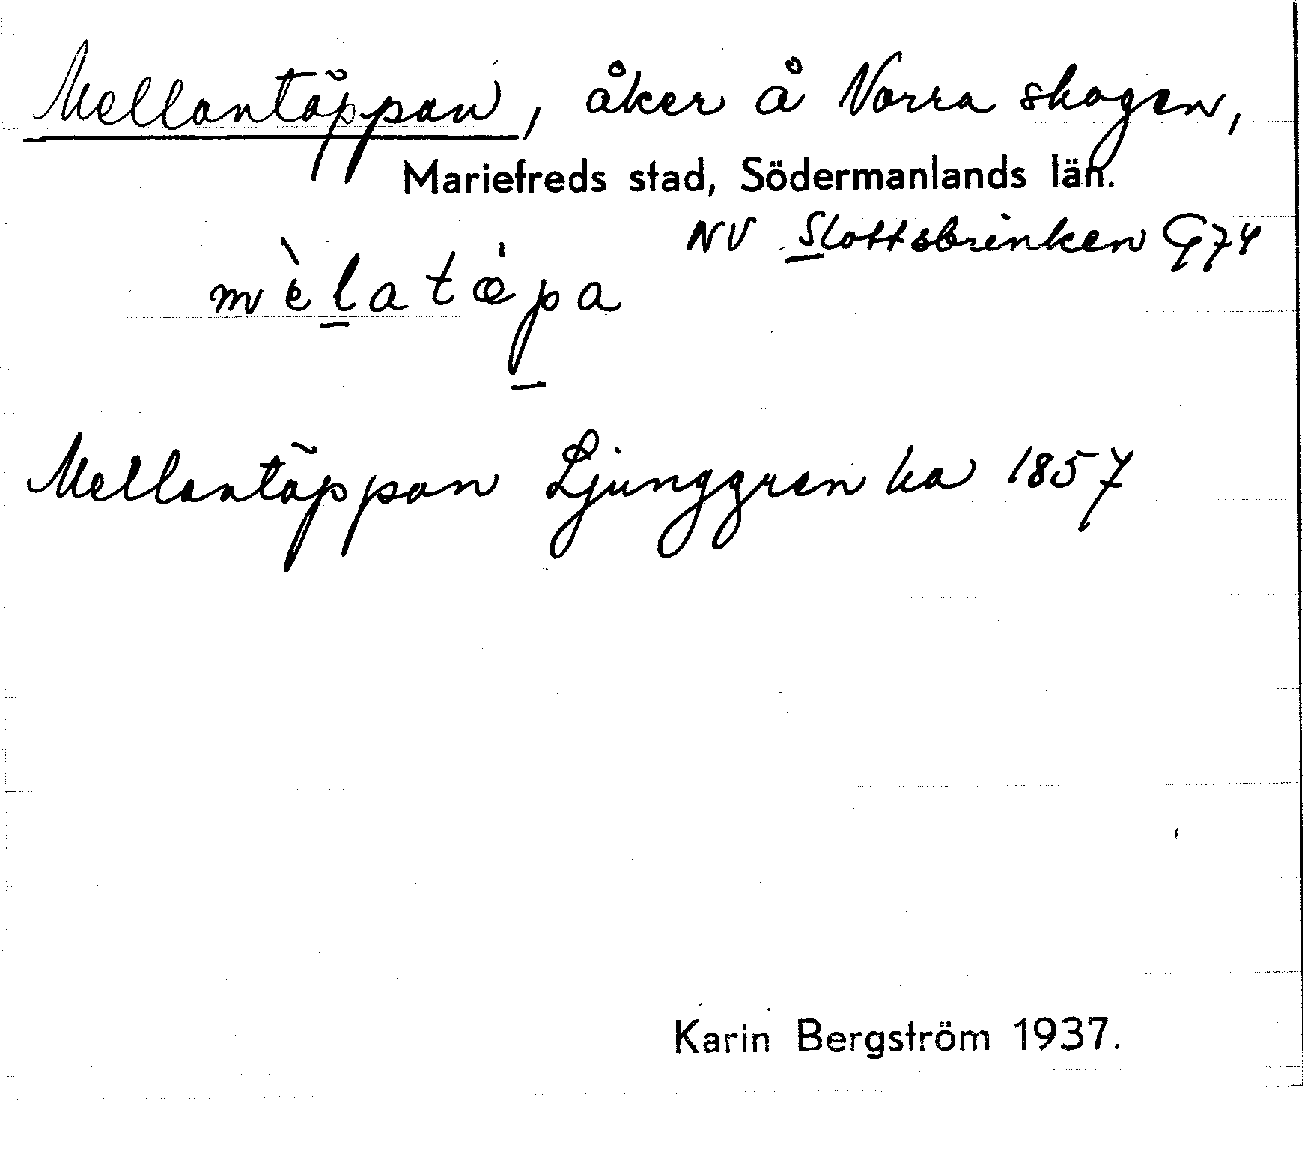 Mellantäppan, åker å Norra skogen,
Mariefreds stad, Södermanlands län.
NV Slottsbrinken G74
mèlatǽpa
Mellantäppan Ljunggren ka 1857
Karin Bergström 1937.